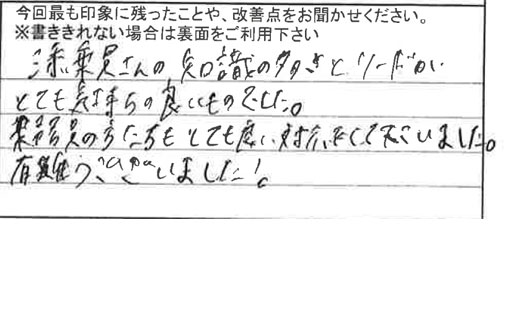 今回最も印象に残ったことや、改善点をお聞かせください。
※書ききれない場合は裏面をご利用下さい
添乗員さんの知識の多さとリードが
とても気持ちの良いものでした。
乗務員の方たちもとても良い対応をして下さいました。
有難うございました!。